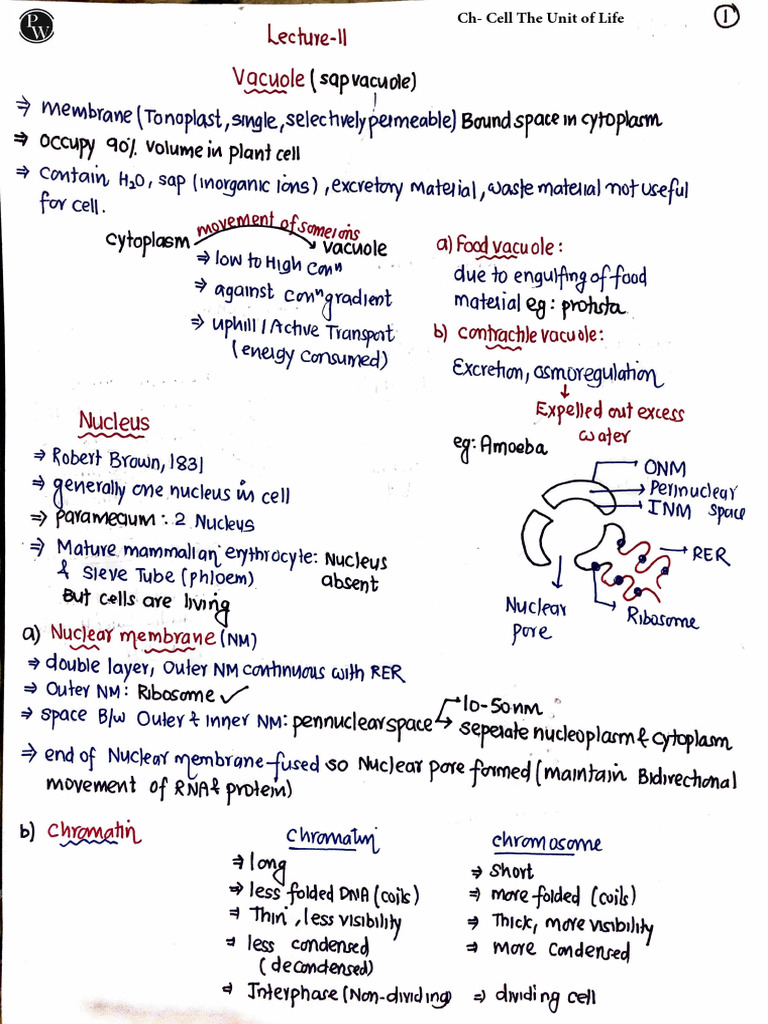 PW
Ch- Cell The Unit of Life
1
Lecture-11
Vacuole (sap vacuole)
⇒ membrane (Tonoplast, single, selectively permeable) Bound space in cytoplasm
⇒ occupy 90% volume in plant cell
⇒ contain H₂O, sap (inorganic ions), excretory material, waste material not useful
for cell.
movement of some ions
cytoplasm → vacuole
⇒ low to High conⁿ
⇒ against conⁿ gradient
⇒ uphill / Active Transport
(energy consumed)
a) Food vacuole:
due to engulfing of food
material eg: protista
b) contractile vacuole:
Excretion, osmoregulation
↓
Expelled out excess
water
eg: Amoeba
Nucleus
⇒ Robert Brown, 1831
⇒ generally one nucleus in cell
⇒ paramecium: 2 Nucleus
⇒ Mature mammalian erythrocyte: Nucleus
& Sieve Tube (phloem) absent
But cells are living
ONM
Perinuclear
INM space
RER
Ribosome
Nuclear
pore
a) Nuclear membrane (NM)
⇒ double layer, Outer NM continuous with RER
⇒ Outer NM: Ribosome ✓
⇒ space B/w Outer & Inner NM: perinuclear space → 10-50nm
→ seperate nucleoplasm & cytoplasm
⇒ end of Nuclear membrane-fused so Nuclear pore formed (maintain Bidirectional
movement of RNA & protein)
b) Chromatin
Chromatin
⇒ long
⇒ less folded DNA (coils)
⇒ Thin, less visibility
⇒ less condensed
(decondensed)
⇒ Interphase (Non-dividing)
chromosome
⇒ short
⇒ more folded (coils)
⇒ Thick, more visibility
⇒ more condensed
⇒ dividing cell